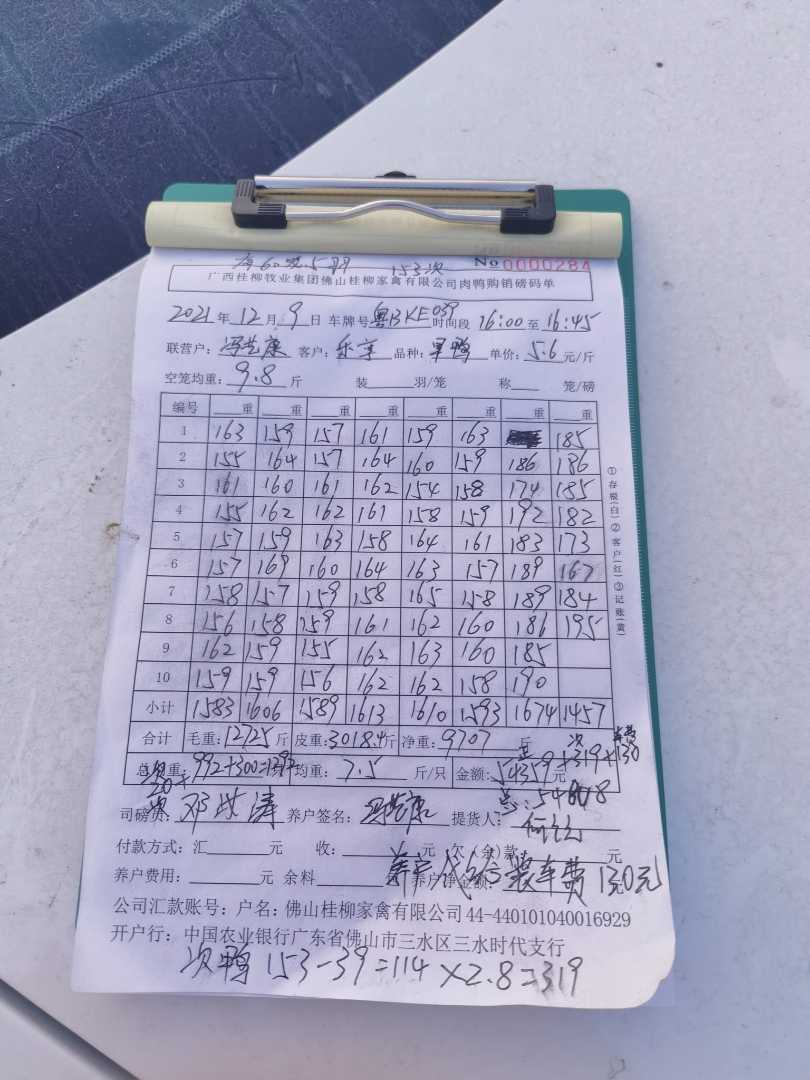 有60 5羽 153次
No 0000284
广西桂柳牧业集团佛山桂柳家禽有限公司肉鸭购销磅码单
2021年12月9日 车牌号粤BKE039 时间段16:00至16:45
联营户: 冯艺康 客户: 乐享 品种: 单鸭 单价: 5.6元/斤
空笼均重: 9.8斤 装 羽/笼 称 笼/磅
编号 重 重 重 重 重 重 重 重
1 163 159 157 161 159 163 185
2 155 164 157 164 160 159 186 186
3 161 160 161 162 154 158 174 185
4 155 162 162 161 158 159 192 182
5 157 159 163 158 164 161 183 173
6 157 169 160 164 163 157 189 167
7 158 157 159 158 165 158 189 184
8 156 158 159 161 162 160 186 195
9 162 159 155 162 163 160 185
10 159 159 156 162 162 158 190
小计 1583 1606 1589 1613 1610 1593 1674 1457
合计 毛重: 12725斤 皮重: 3018.4斤 净重: 9707斤
次 车费
总 重: 992+300=1292 均重: 7.5斤/只 金额: 54359元 +319+130
总: 54808
司磅员: 邓 涛 养户签名: 冯艺康 提货人: 何
付款方式: 汇 元 收: 元 欠(余)款 元
养户费用: 元 余料 养户净金额: 养户代付装车费130元
公司汇款账号: 户名: 佛山桂柳家禽有限公司44-440101040016929
开户行: 中国农业银行广东省佛山市三水区三水时代支行
次鸭 153-39=114×2.8=319
①存根(白)②客户(红)③记账(黄)